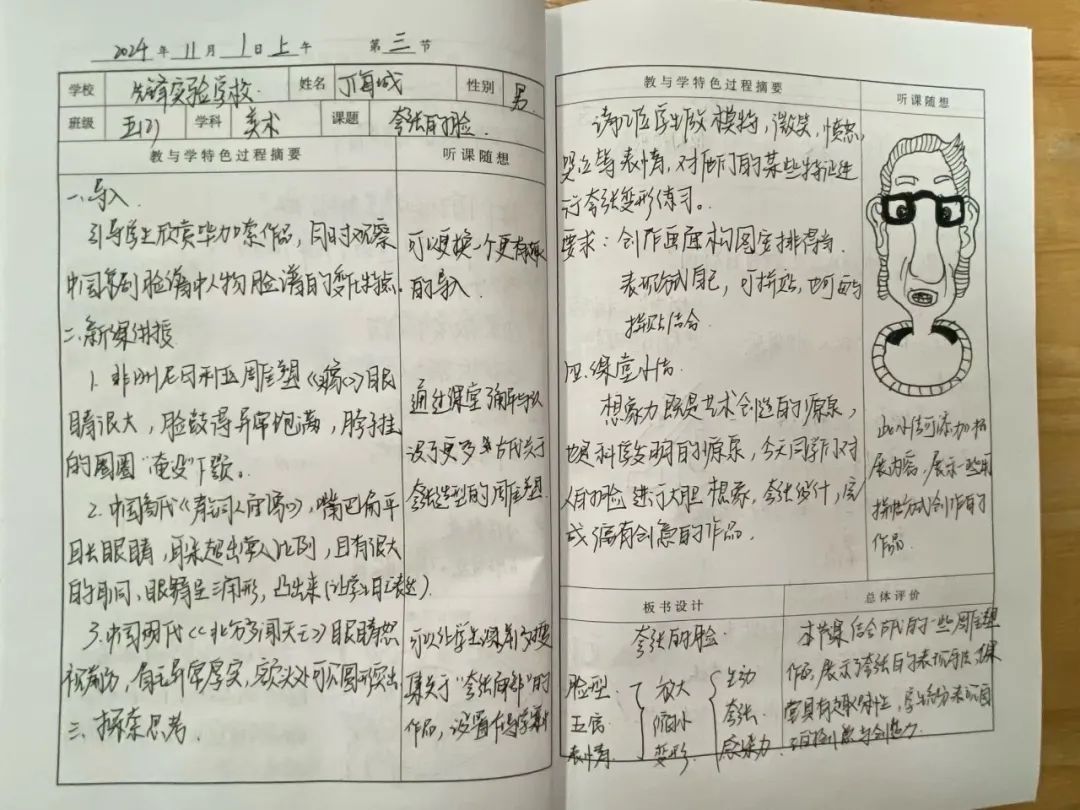 2024 年 11 月 1 日 上 午 第 三 节
学校 先锋实验学校 姓名 丁海城 性别 男
班级 五(2) 学科 美术 课题 夸张的脸
教与学特色过程摘要 听课随想
一、导入
引导学生欣赏毕加索作品，同时观察
中国京剧脸谱中人物脸谱的变化特点.
可以更换一个更有趣
的导入.
二、新课讲授
1. 非洲尼日利亚雕塑《》眼
睛很大，脸鼓得异常饱满，脖子挂
的圈圈“淹没”下颚。
通过课堂了解与认
识了更多古代关于
夸张造型的雕塑
2. 中国商代《青铜人面像》，嘴巴扁平
眼睛，耳朵超出常人比例，且有很大
的耳洞，眼睛呈三角形，凸出来(让学生自己表达).
3. 中国明代《北方多闻天王》眼睛怒
视前方，眉毛异常厚实，额头处可以圆形突出
可以让学生课前多搜
集关于“夸张”的
作品，设置
三、探索思考.
教与学特色过程摘要 听课随想
请几位学生做模特，微笑，愤怒，
哭泣等表情，对他们的某些特征进
行夸张变形练习。
要求：创作画面构图安排得当.
表现方式自己，可拼贴，也可画与
拼贴结合.
四.课堂小结.
想象力既是艺术创造的源泉，
也是科学发明的源泉，今天同学们对
人的脸进行大胆想象，夸张设计，完
成一幅有创意的作品.
此小结可添加拓
展内容，展示一些用
拼贴方式创作的
作品.
板书设计 总体评价
夸张的脸.
脸型. 放大 生动
五官 缩小 夸张.
表情. 变形. 感染力.
本节课结合古代的一些雕塑
作品，展示了夸张的表现手法，课
堂具有趣味性，学生